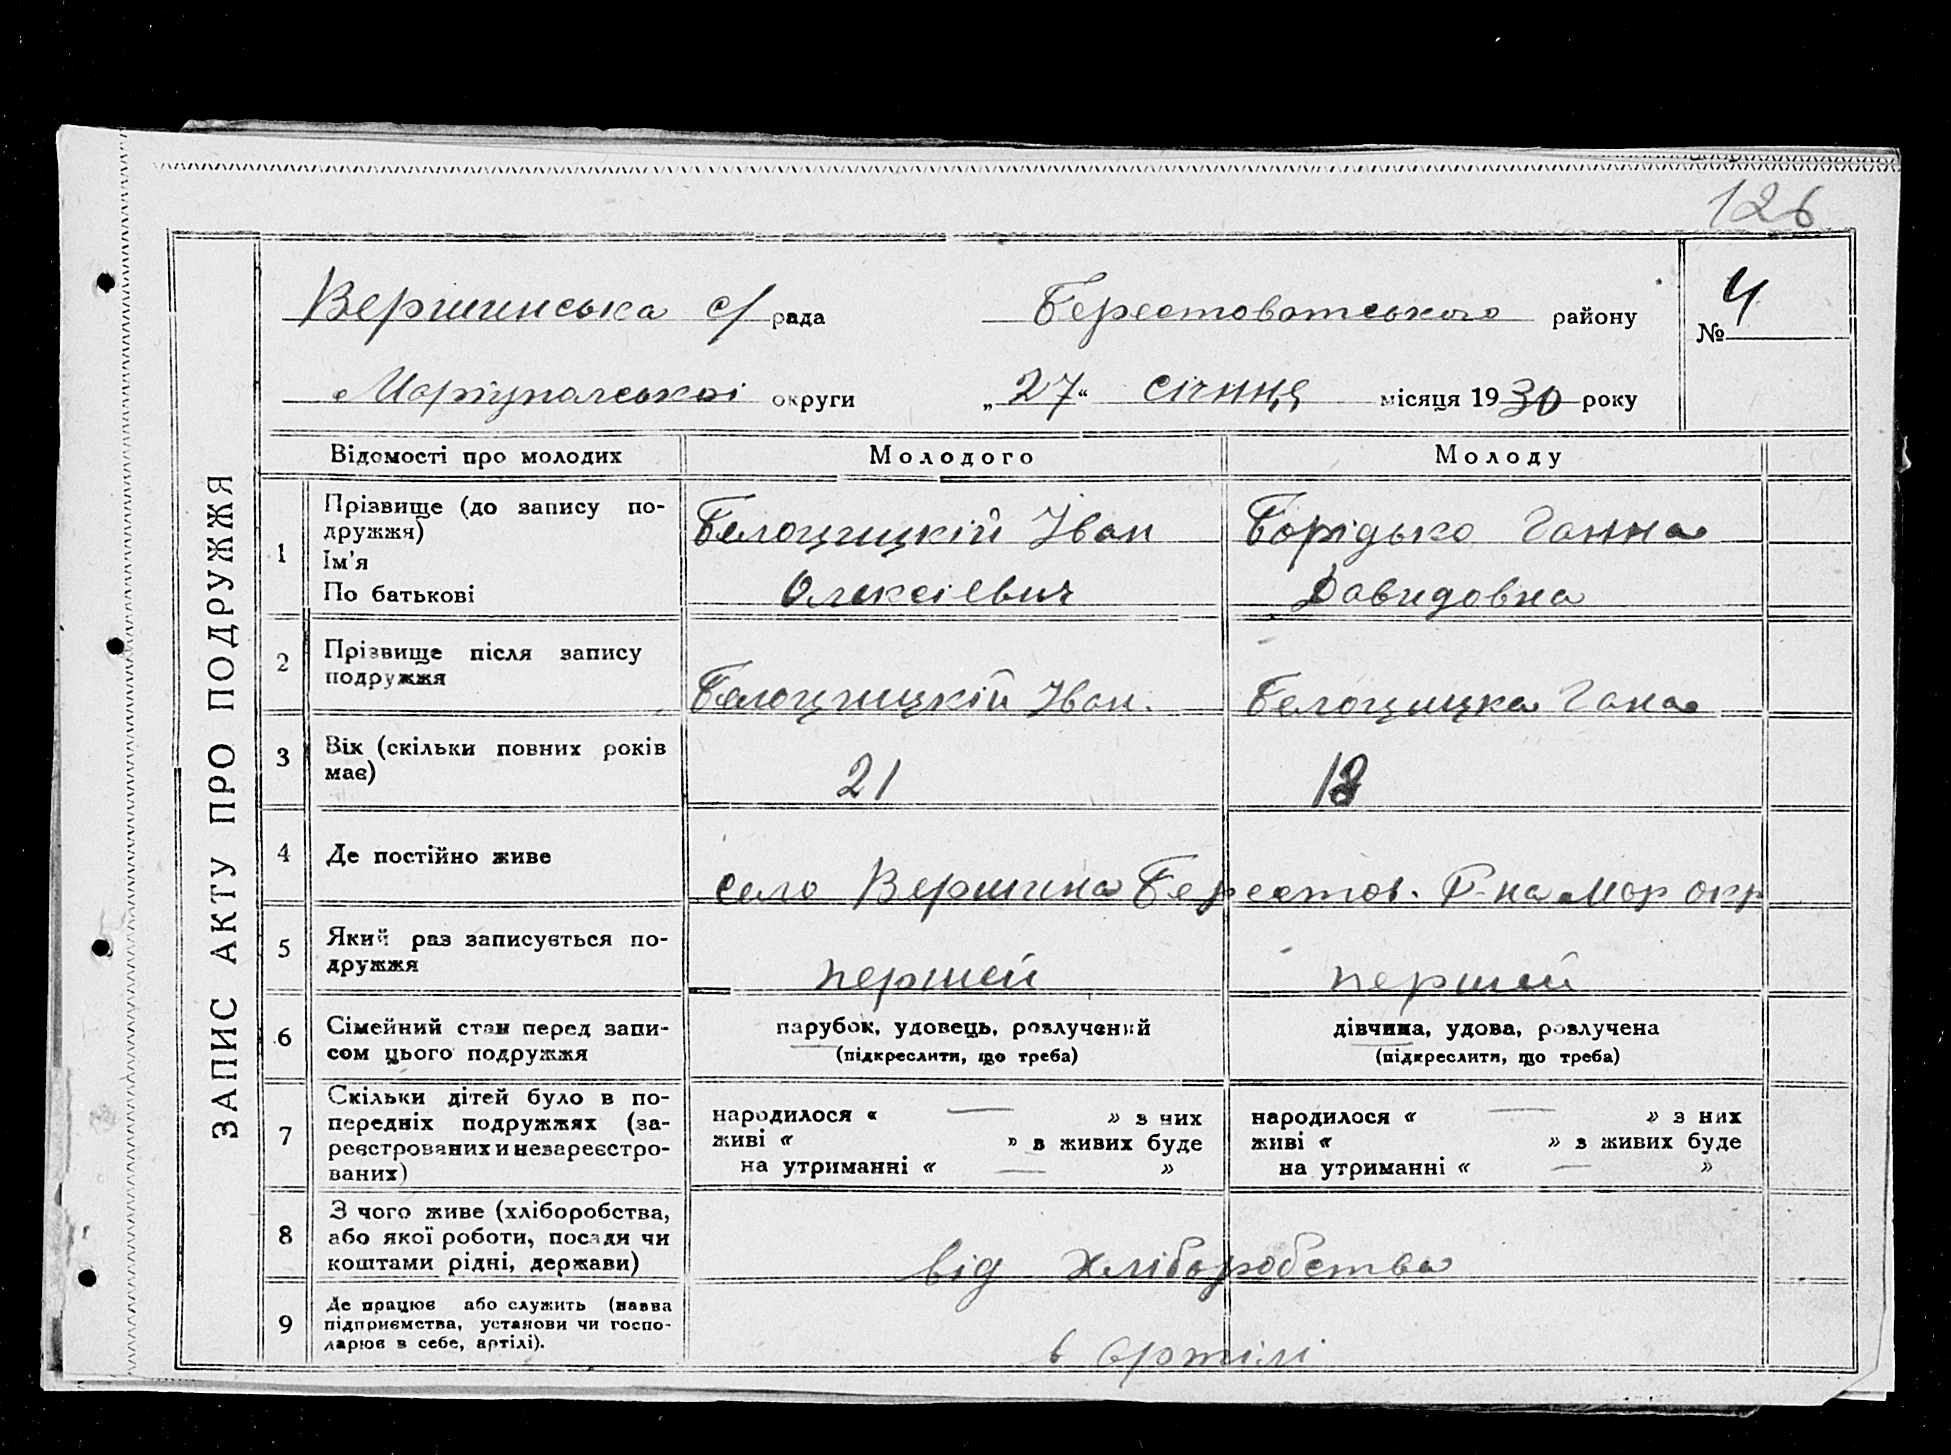 126
Вершинська с/рада Берестоватського району № 4
Маріупольськоі округи „27“ січння місяця 1930 року
ЗАПИС АКТУ ПРО ПОДРУЖЖЯ
Відомості про молодих Молодого Молоду
1 Прізвище (до запису по-
дружжя)
Ім'я
По батькові
Белоцицкій Іван
Олексіевич
Борідько Ганна
Давидовна
2 Прізвище після запису
подружжя
Белоцицкій Іван.
Белоцицка Гана
3 Вік (скільки повних років
має)
21 18
4 Де постійно живе
село Вершина Берестов. Р-на Мар окр
5 Який раз записується по-
дружжя
першей першей
6 Сімейний стан перед запи-
сом цього подружжя
парубок, удовець, розлучений
(підкреслити, що треба)
дівчина, удова, розлучена
(підкреслити, що треба)
7 Скільки дітей було в по-
передніх подружжях (за-
реєстрованих и незареєстро-
ваних)
народилося « — » з них
живі « » в живих буде
на утриманні « — »
народилося « — » з них
живі « » з живих буде
на утриманні « — »
8 З чого живе (хліборобства,
або якої роботи, посади чи
коштами рідні, держави)
від хліборобства
9 Де працює або служить (назва
підприємства, установи чи госпо-
дарює в себе, артілі).
в артілі